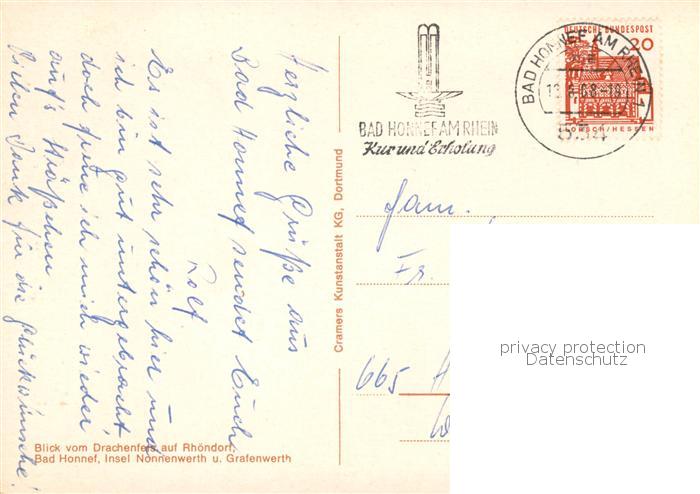 Herzliche Grüße aus
Bad Honnef sendet Euch
Rolf
Es ist sehr schön hier und
ich bin gut untergebracht
doch freue ich mich wieder
auf's Sträßchen
Vielen Dank für die Glückwünsche!
Blick vom Drachenfels auf Rhöndorf,
Bad Honnef, Insel Nonnenwerth u. Grafenwerth
Cramers Kunstanstalt KG, Dortmund
BAD HONNEF AM RHEIN
Kur und Erholung
BAD HONNEF AM RHEIN 1
534
DEUTSCHE BUNDESPOST
20
LORSCH/HESSEN
Fam.
Fr.
665 H
privacy protection
Datenschutz